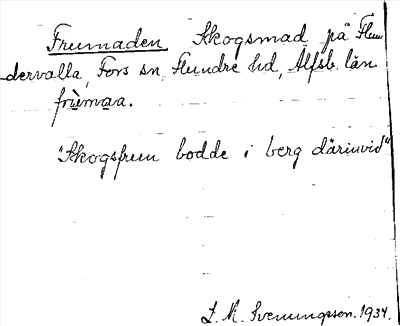 Frumaden Skogsmad på Flun
dervalla, Fors sn, Flundre hd, Älfsb. län
frùmaa.
"Skogsfrun bodde i berg därinvid"
L. M. Svenungsson. 1934.